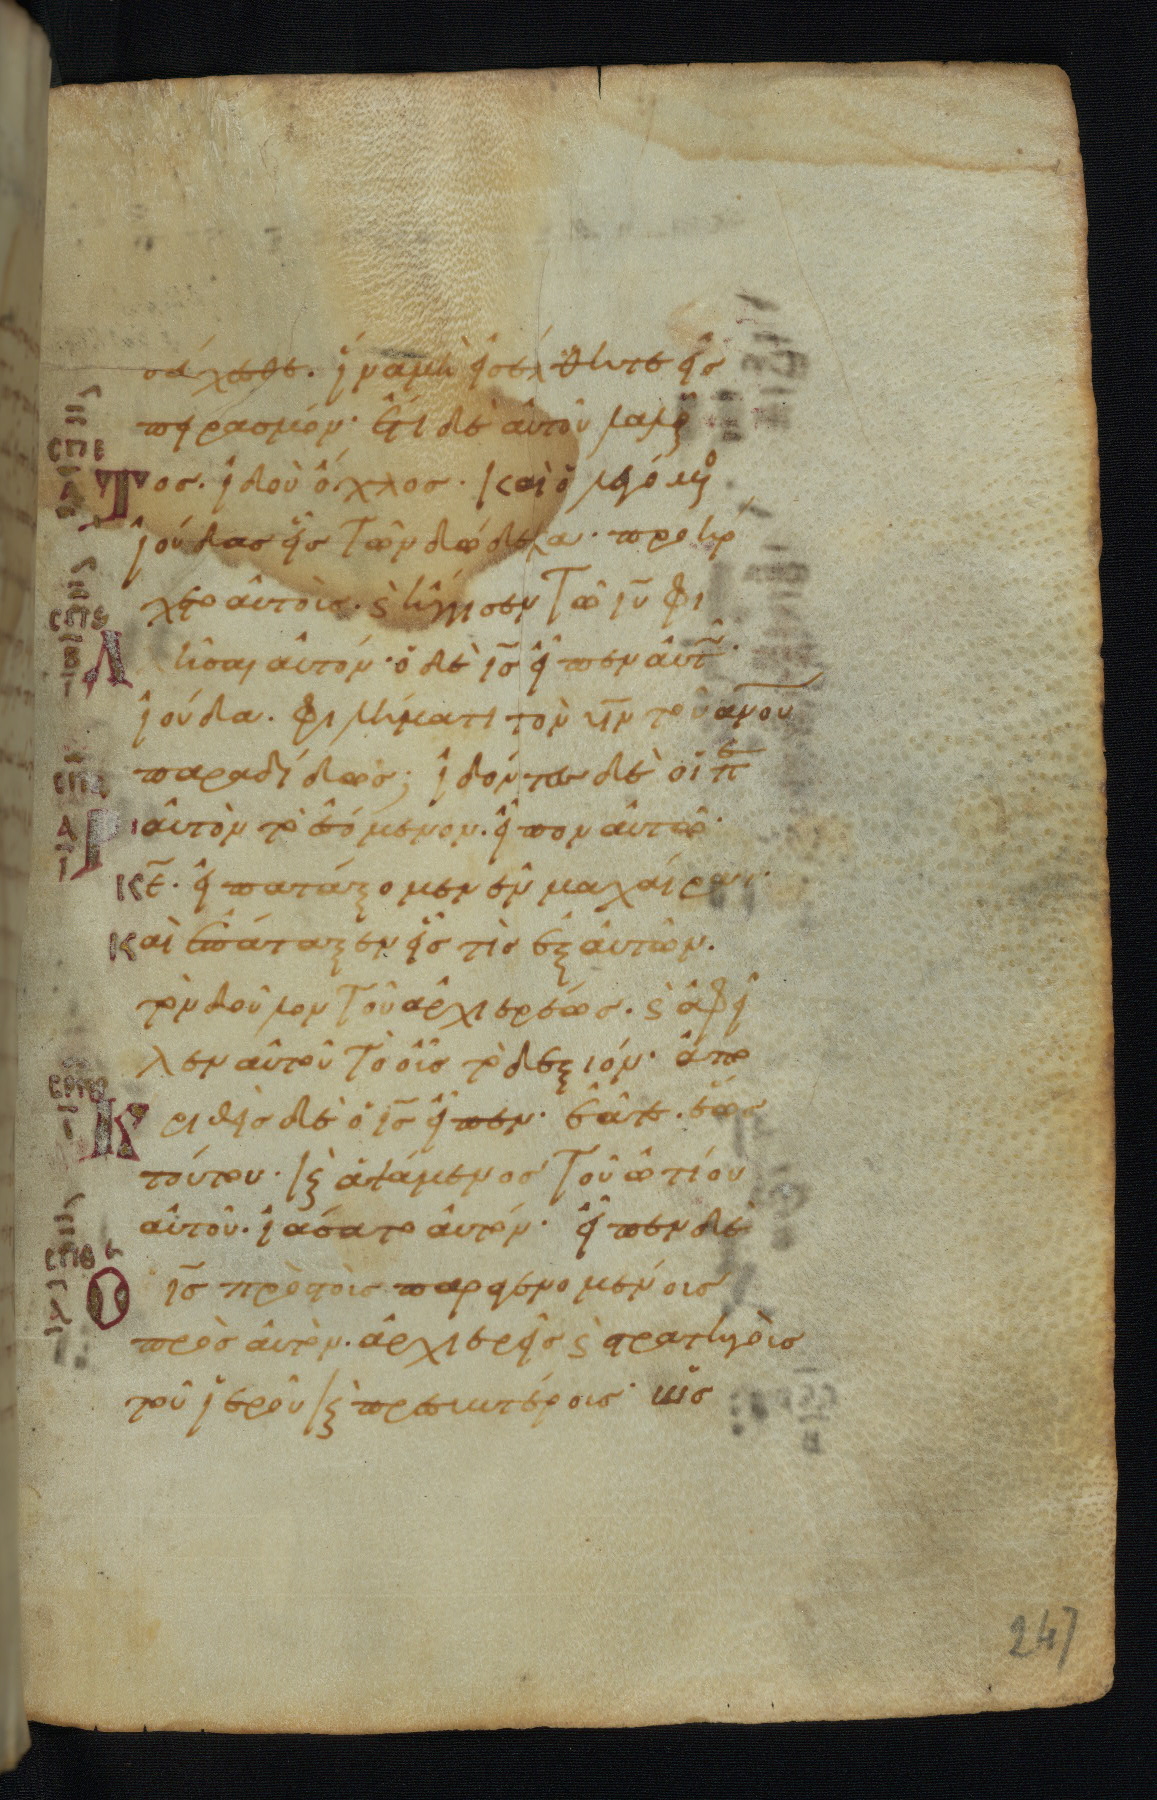 σεύχεσθε. ἵνα μὴ εἰσέλθητε εἰς
πειρασμόν· ἔτι δὲ αὐτοῦ λαλοῦν
τος. ἰδοὺ ὄχλος. καὶ ὁ λεγόμενο
ἰούδας εἷς τῶν δώδεκα· προήρ
χετο αὐτοῖς. ϛ ἤγγισεν τῶ ιυ φι
λῆσαι αὐτόν· ὁ δὲ ις εἶπεν αὐτῶ·
ἰούδα. φιλήματι τὸν υν τοῦ ανου
παραδίδως; ἰδόντες δὲ οἱ πε
ρι αὐτὸν τὸ ἐσόμενον. εἶπον αὐτῶ·
κε. εἰ πατάξομεν ἐν μαχαίρα·
καὶ ἐπάταξεν εἷς τὶς ἐξ αὐτῶν.
τὸν δοῦλον τοῦ ἀρχιερέως. ϛ ἀφεῖ
λεν αὐτοῦ τὸ οὖς τὸ δεξιόν· ἀπο
κριθεὶς δὲ ὁ ις εἶπεν· ἐᾶτε. ἕως
τούτου. κ ἁψάμενος τοῦ ὠτίου
αὐτοῦ. ἰάσατο αὐτόν· εἶπεν δὲ
ὁ ις πρὸς τοὺς παραγενομένους
πρὸς αὐτὸν. ἀρχιερεῖς ϛ στρατηγοὺς
τοῦ ἱεροῦ κ πρεσβυτέρους· ὡς
247